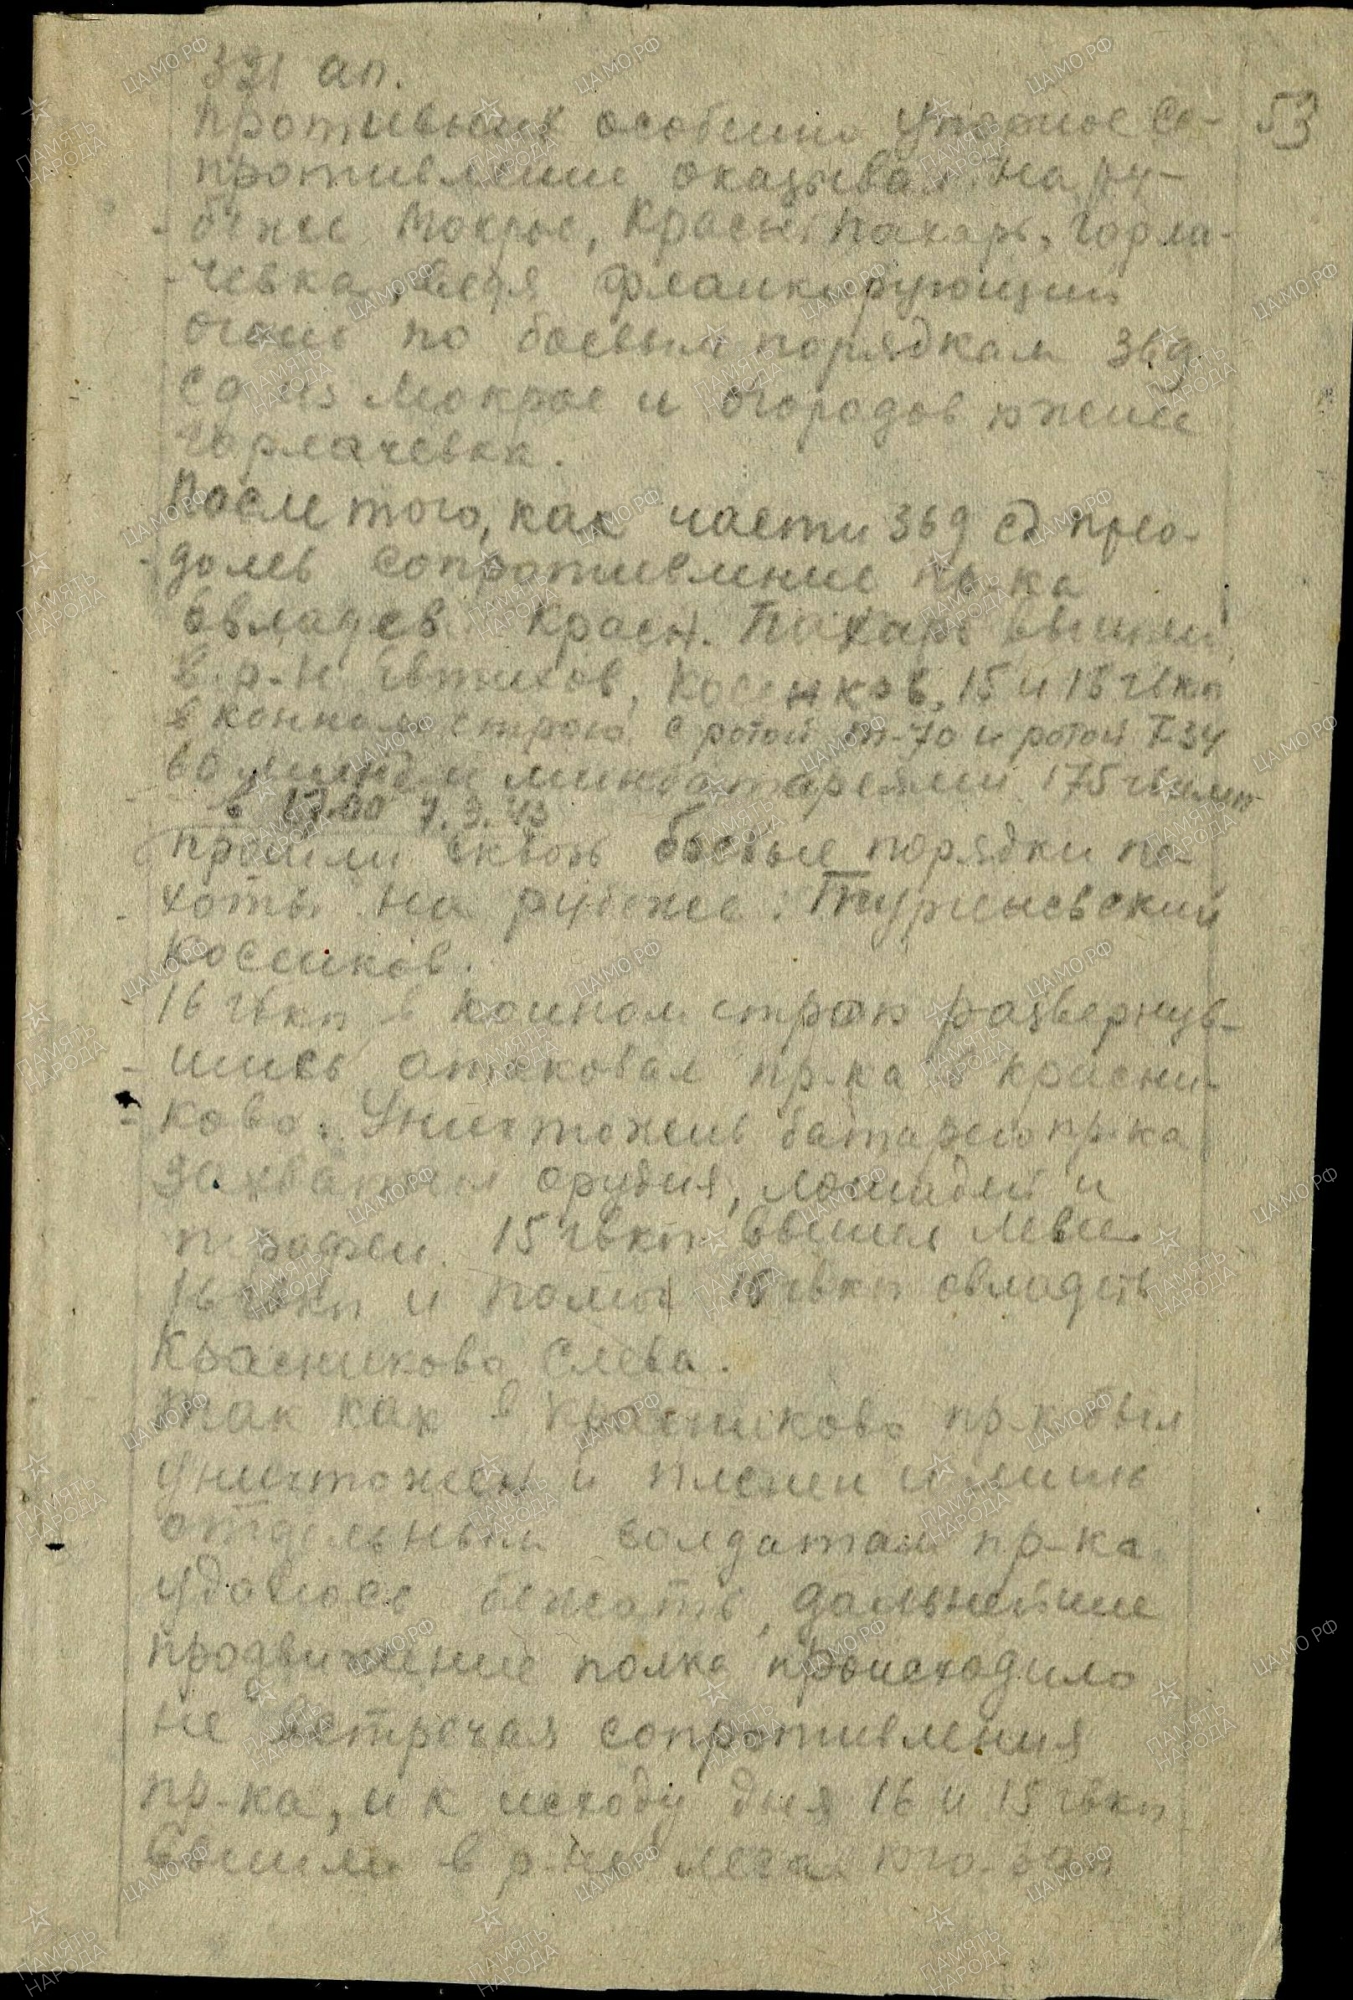 321 ап.
53
Противник особенно упорное со-
противление оказывал на ру-
беже Мокрое, Красн. Пахарь, Горла-
чевка, ведя фланкирующий
огонь по боевым порядкам 369
сд из Мокрое и огородов южнее
Горлачевка.
После того, как части 369 сд прео-
долев сопротивление пр-ка
овладев Красн. Пахарь вышли
в р-н Евтихов, Косенков, 15 и 16 гвкп
в конном строю с ротой т-70 и ротой Т-34
и минбатареями 175 гвмп
в 17.00 7.9.43
прошли сквозь боевые порядки пе-
хоты на рубеже:
Косенков.
16 гвкп в конном строю развернув-
шись атаковал пр-ка в Красни-
ково. Уничтожив батарею пр-ка
захватил орудия, лошадей и
трофеи. 15 гвкп вышел левее
16 гвкп и помог 16 гвкп овладеть
Красниково слева.
Так как в Красниково пр-к был
уничтожен и пленен и лишь
отдельным солдатам пр-ка
удалось бежать, дальнейшее
продвижение полка происходило
не встречая сопротивления
пр-ка, и к исходу дня 16 и 15 гвкп
вышли в р-не леса юго-зап